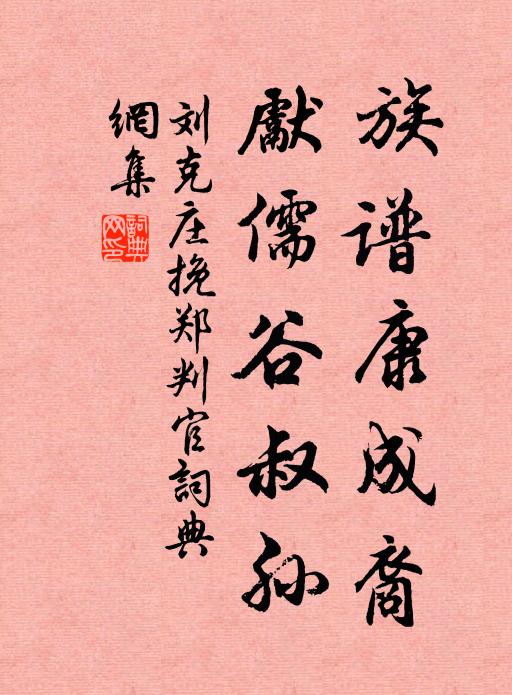 族谱康成裔
献儒谷叔孙
刘克庄挽郑判官詞典
網集
詞典
网印